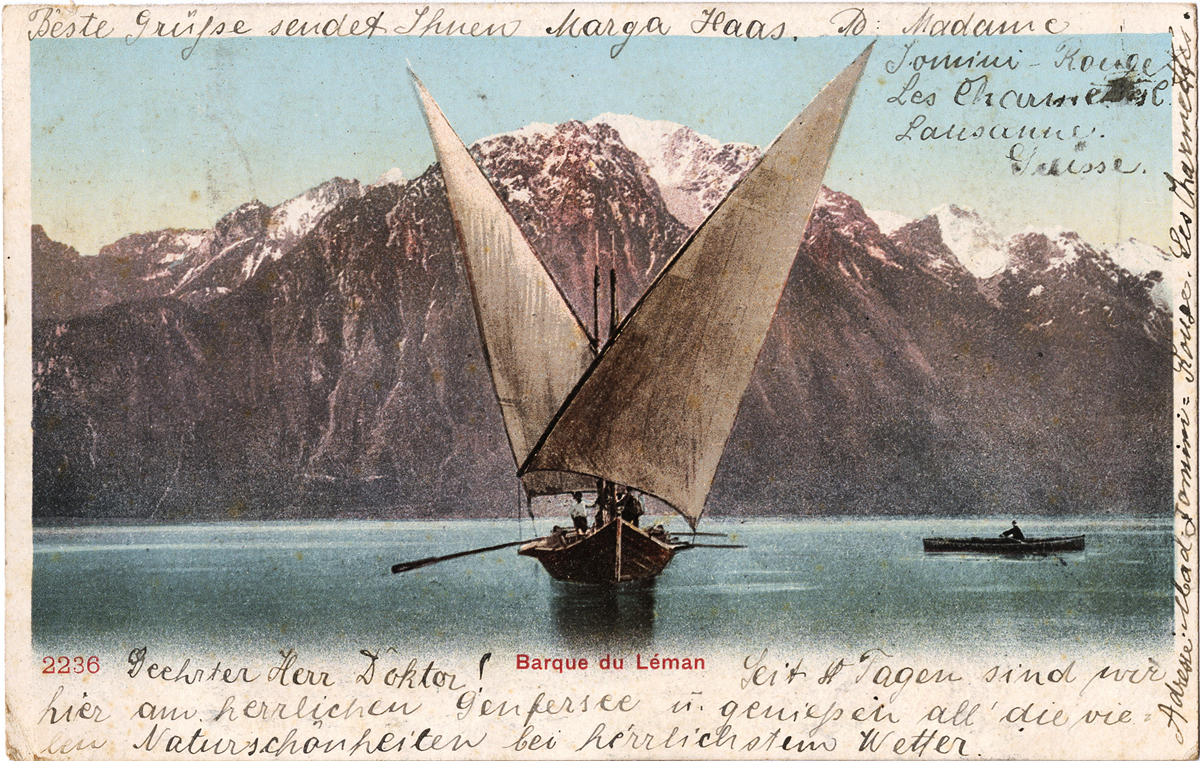 Beste Grüße sendet Ihnen Marga Haas. Madame
Jomini-Rouge
Les Charmettes
Lausanne.
Suisse.
2236
Barque du Léman
Geehrter Herr Doktor!
Seit 8 Tagen sind wir
hier am herrlichen Genfersee u. genießen all' die vie=
len Naturschönheiten bei herrlichstem Wetter.
Adresse: Mad. Jomini=Rouge. Les Charmettes.